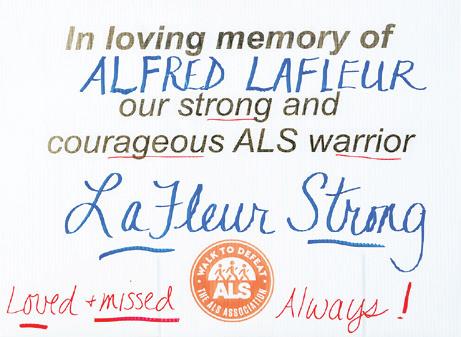 In loving memory of
ALFRED LAFLEUR
our strong and
courageous ALS warrior
LaFleur Strong
WALK TO DEFEAT
ALS
THE ALS ASSOCIATION
Loved + missed Always!